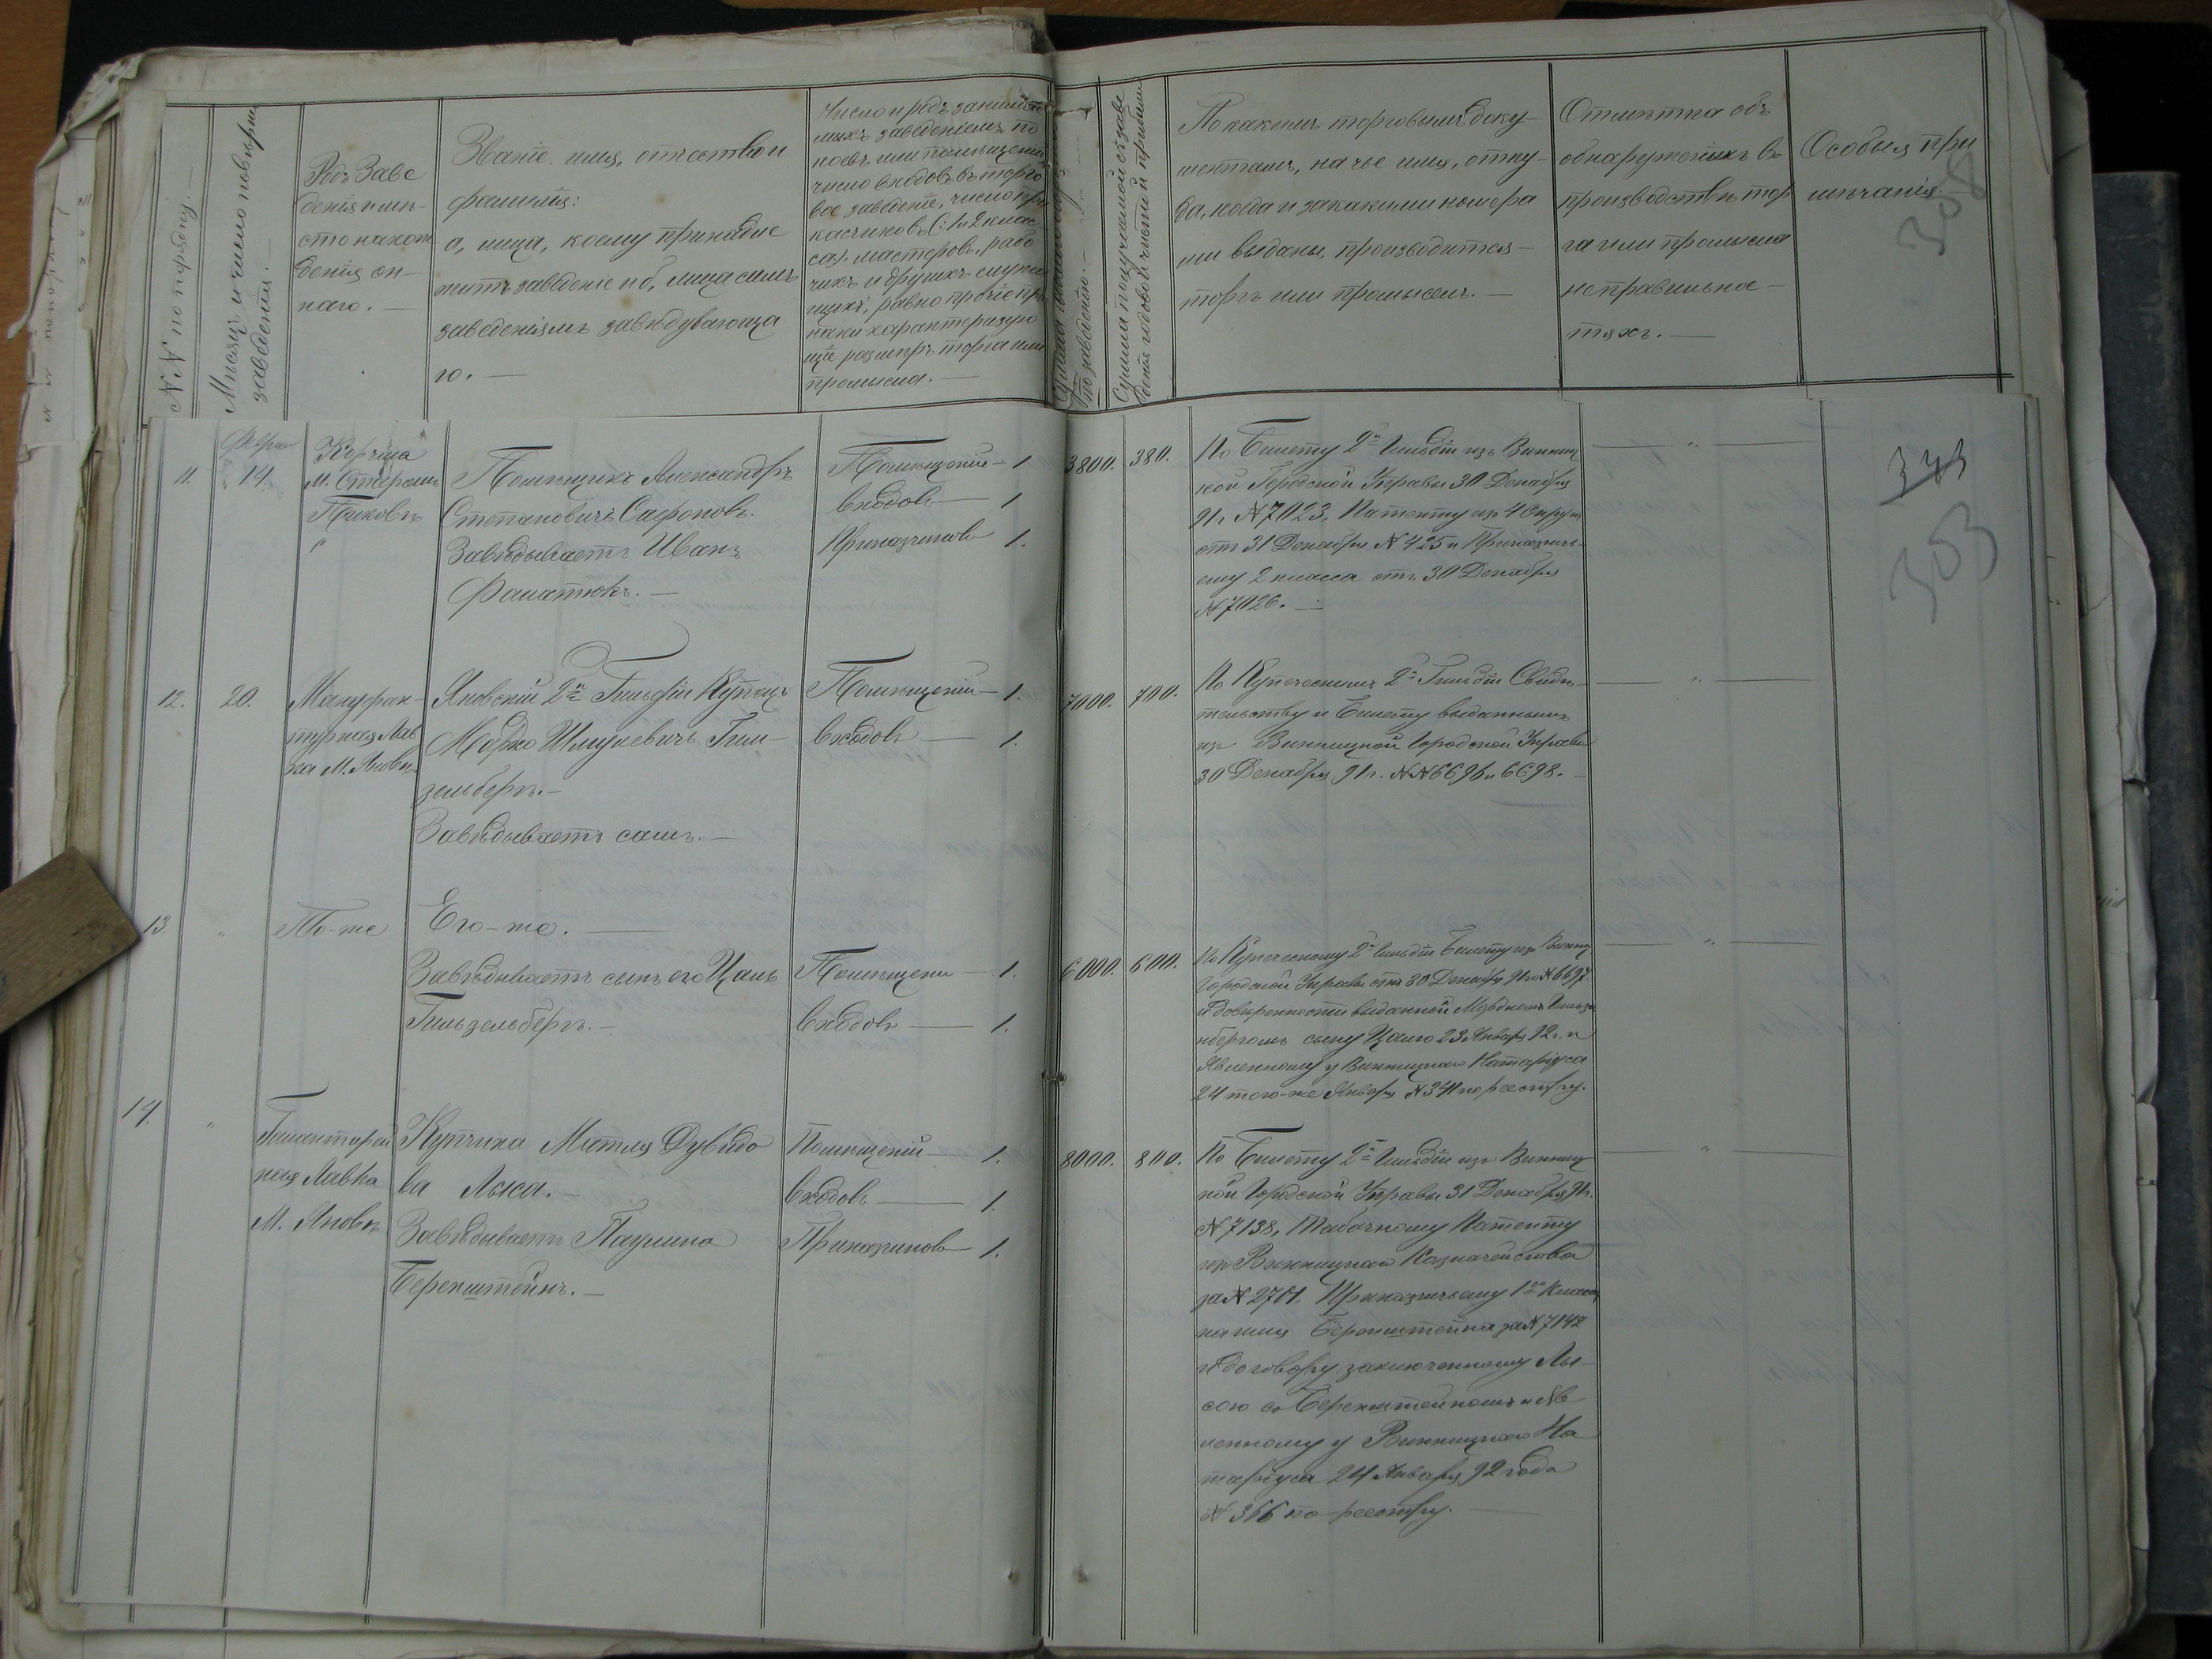 №№ по порядку. —
Мѣсяцъ и число повѣрки
заведенія. —
Родъ Заве
денія и мѣ-
сто нахож
денія он-
наго. —
Званіе, имя, отчество и
фамилія:
а, лица, коему принадле
житъ заведеніе и б, лица симъ
заведеніямъ завѣдувающа
го. —
Число и родъ занимае
мыхъ заведеніемъ по
коевъ или помѣщеній
число входовъ въ торго
вое заведеніе, число при
касчиковъ (1 и 2 клас
са) мастеровъ, рабо
чихъ и другихъ служа
щихъ, равно прочіе приз
наки характеризую
щіе размѣръ торга или
промысла. —
по заведенію. —
Сумма получаемой съ заве
денія годовой чистой прибыли
По какимъ торговымъ доку-
ментамъ, на чье имя, отку-
да, когда и за какими номера
ми выданы, производится —
торгъ или промыселъ. —
Отмѣтка объ
обнаруженныхъ въ
производствѣ тор
га или промысла
неправильнос-
тяхъ. —
Особыя при
мѣчанія. —
308
11.
Феврал
14.
Корчма
М. Старомъ
Пиковѣ
Помѣщикъ Александръ
Степановичъ Сафоновъ.
Завѣдываетъ Иванъ
Фалатюкъ. —
Помѣщеній — 1
Входовъ — 1
Приказчиковъ 1.
3800. 380.
По Билету 2й Гильдіи изъ Винниц
кой Городской Управы 30 Декабря
91г. №7023, Патенту изъ 4 Округа
отъ 31 Декабря №425 и Приказчичь-
ему 2 класса отъ 30 Декабря
№7026. —
— " —
343
303
12.
20.
Мануфак-
турная Лав
ка М. Яновѣ
Яновскій 2й Гильдіи Купецъ
Мордко Шмулевичъ Гин-
зельбергъ. —
Завѣдываетъ самъ. —
Помѣщеній — 1.
Входовъ — 1.
7000. 700.
По Купеческимъ 2й Гильдіи Свидѣ-
тельству и Билету выданнымъ
изъ Винницкой Городской Управы
30 Декабря 91г. №№6696 и 6698. —
— " —
13.
"
То-же
Его-же. —
Завѣдываетъ сынъ его Цаль
Гильзельбергъ. —
Помѣщени — 1.
Входовъ — 1.
6000. 600.
По Купеческому 2й Гильдіи Билету изъ Винниц
Городской Управы отъ 30 Декабря 91го №6697
и довѣренности выданной Мордкомъ Гильзе
нбергомъ сыну Цалю 23 Января 92г. и
Явленному у Винницкаго Нотаріуса
24 того-же Января №341 по реестру.
— " —
14.
"
Галантерей
ная Лавка
М. Яновѣ
Купчиха Матля Дувидо
ва Лыса. —
Завѣдываетъ Паулина
Беренштейнъ. —
Помѣщеній 1.
Входовъ — 1.
Приказчиковъ 1.
8000. 800.
По Билету 2й Гильдіи изъ Винниц
кой Городской Управы 31 Декабря 91г.
№7138, Табачному Патенту
изъ Винницкаго Казначейства
за №2701, Приказчичьему 1го Класса
на имя Беренштейна за №7142
и договору заключенному Лы-
сою съ Беренштейномъ и яв
ленному у Винницкаго На
таріуса 24 Января 92 года
№366 по реестру. —
— " —